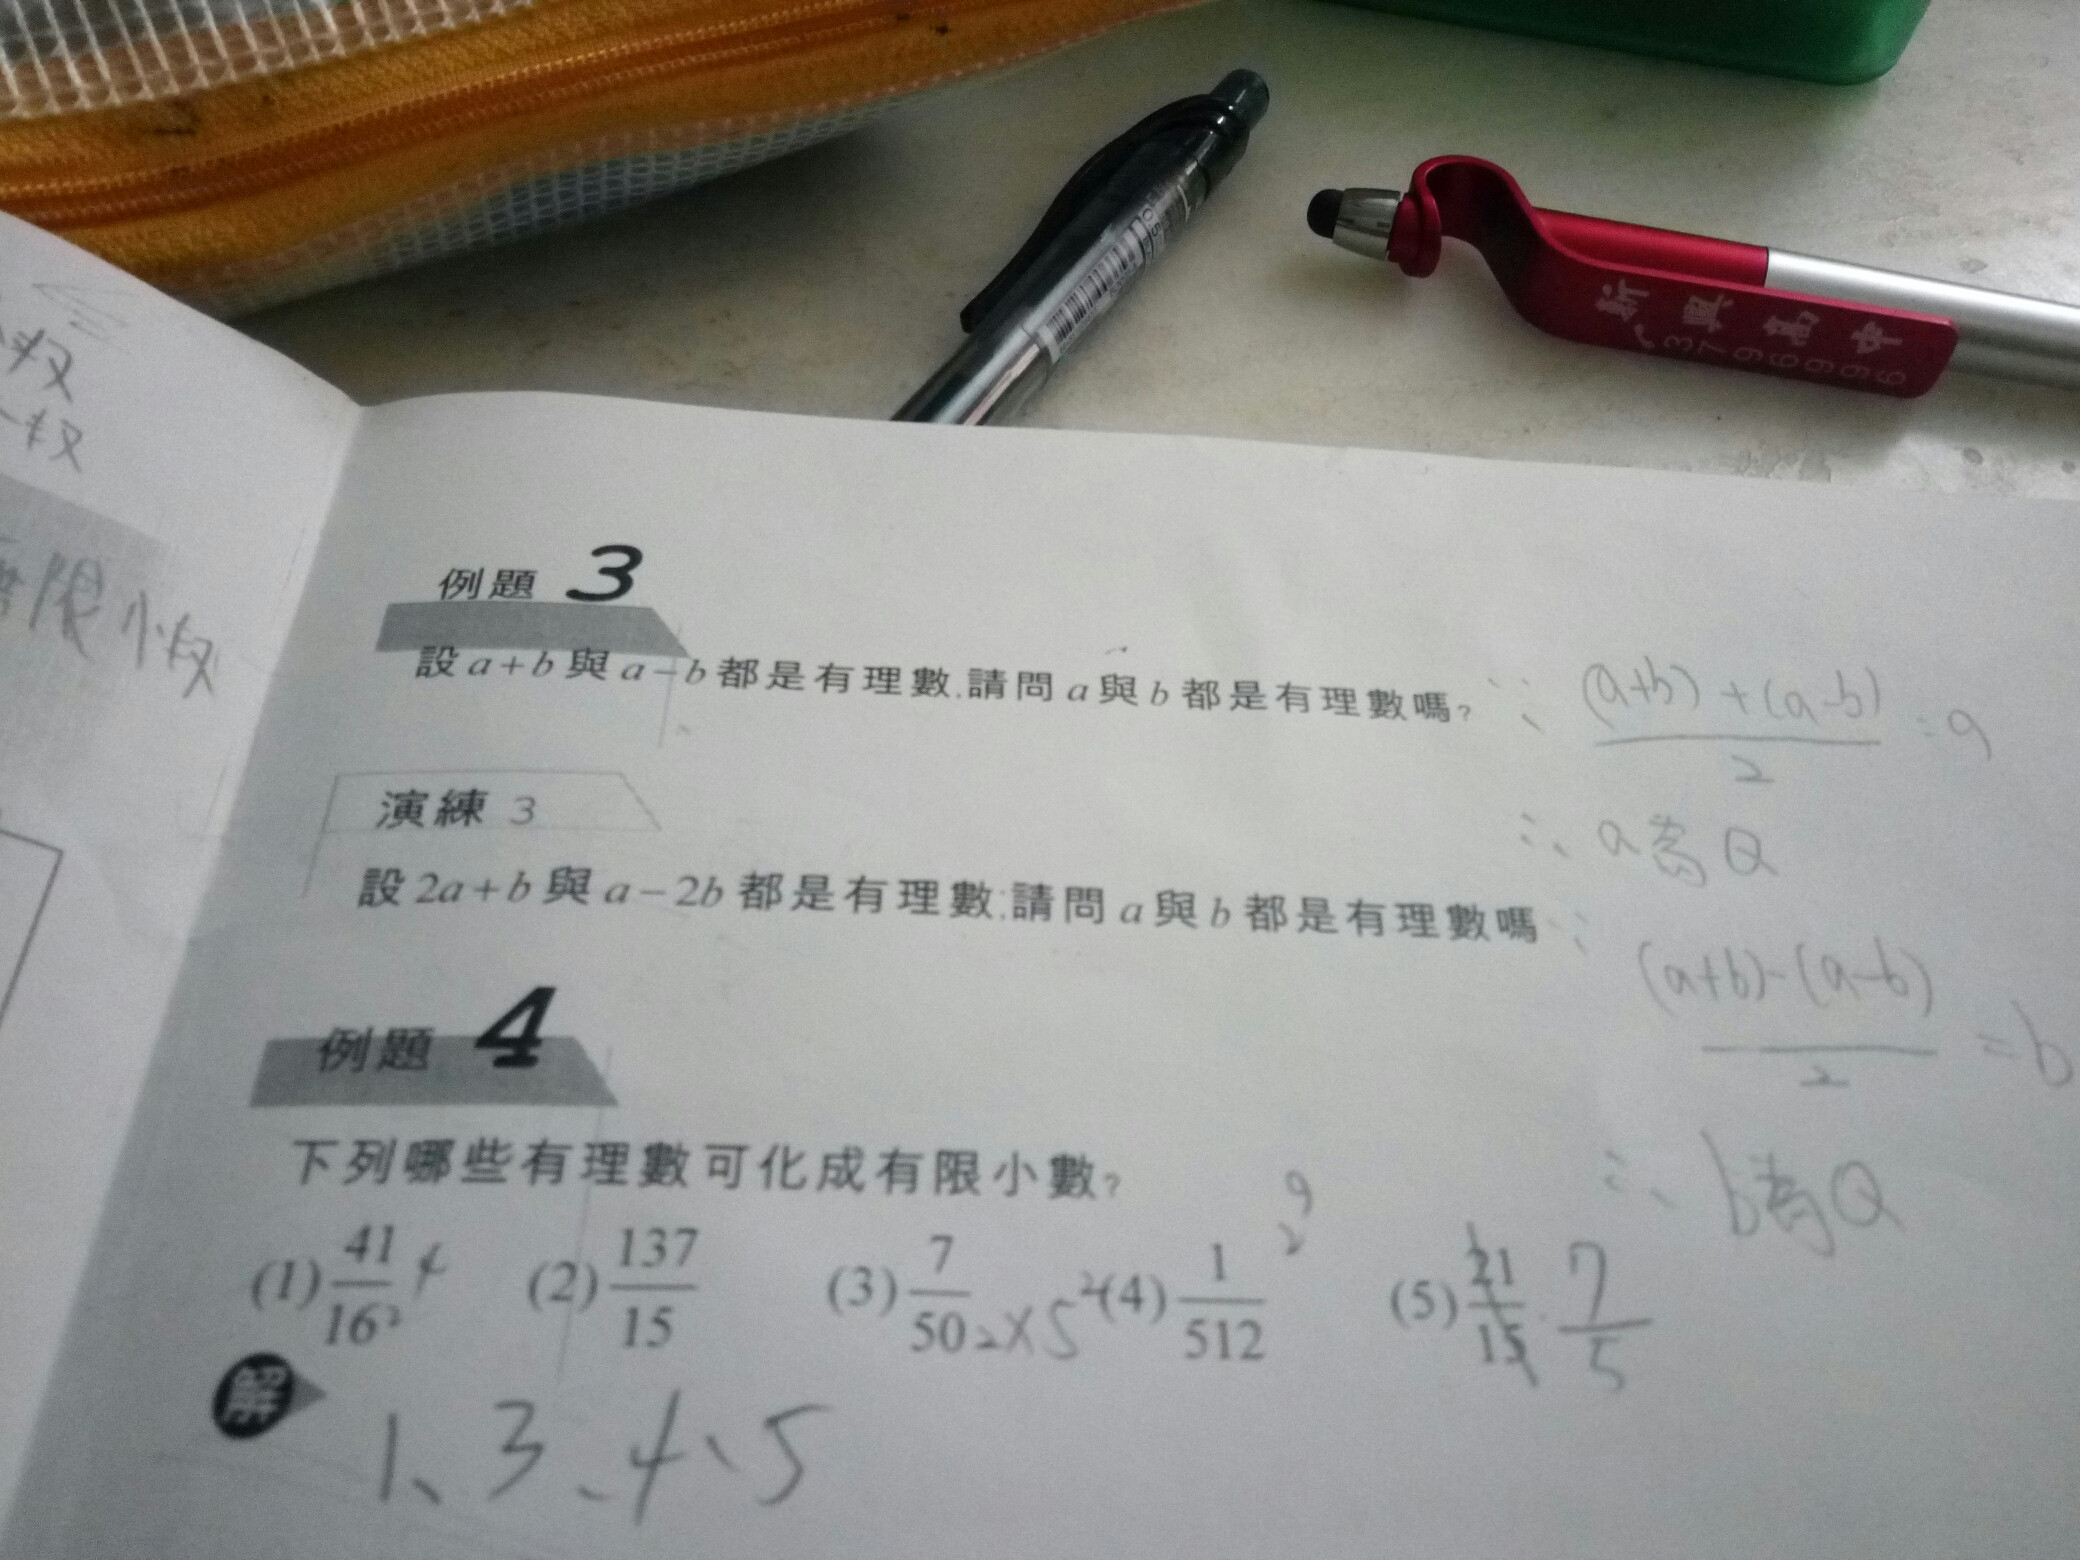 新減當中
37969996
限小数
例題 3
設 a+b 與 a-b 都是有理數,請問 a 與 b 都是有理數嗎?
∵ (a+b)+(a-b) / 2 = a
∴ a為Q
演練 3
設 2a+b 與 a-2b 都是有理數;請問 a 與 b 都是有理數嗎
∵ (a+b)-(a-b) / 2 = b
∴ b為Q
例題 4
下列哪些有理數可化成有限小數?
(1) 41/16 2^4 (2) 137/15 (3) 7/50 2×5^2 (4) 1/512 2^9 (5) 21/15 7/5
解
1、3、4、5